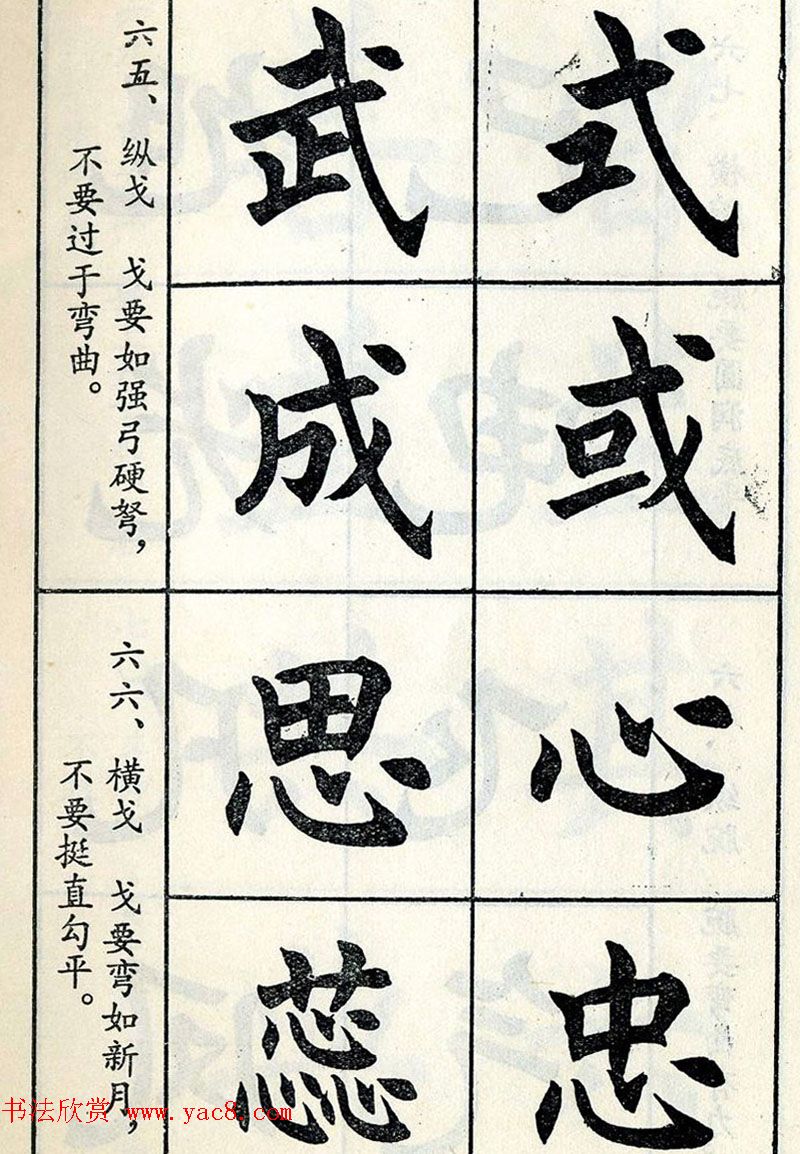 式
或
武
成
六五、纵戈　戈要如强弓硬弩，
不要过于弯曲。
心
忠
思
蕊
六六、横戈　戈要弯如新月，
不要挺直勾平。
书法欣赏 www.yac8.com